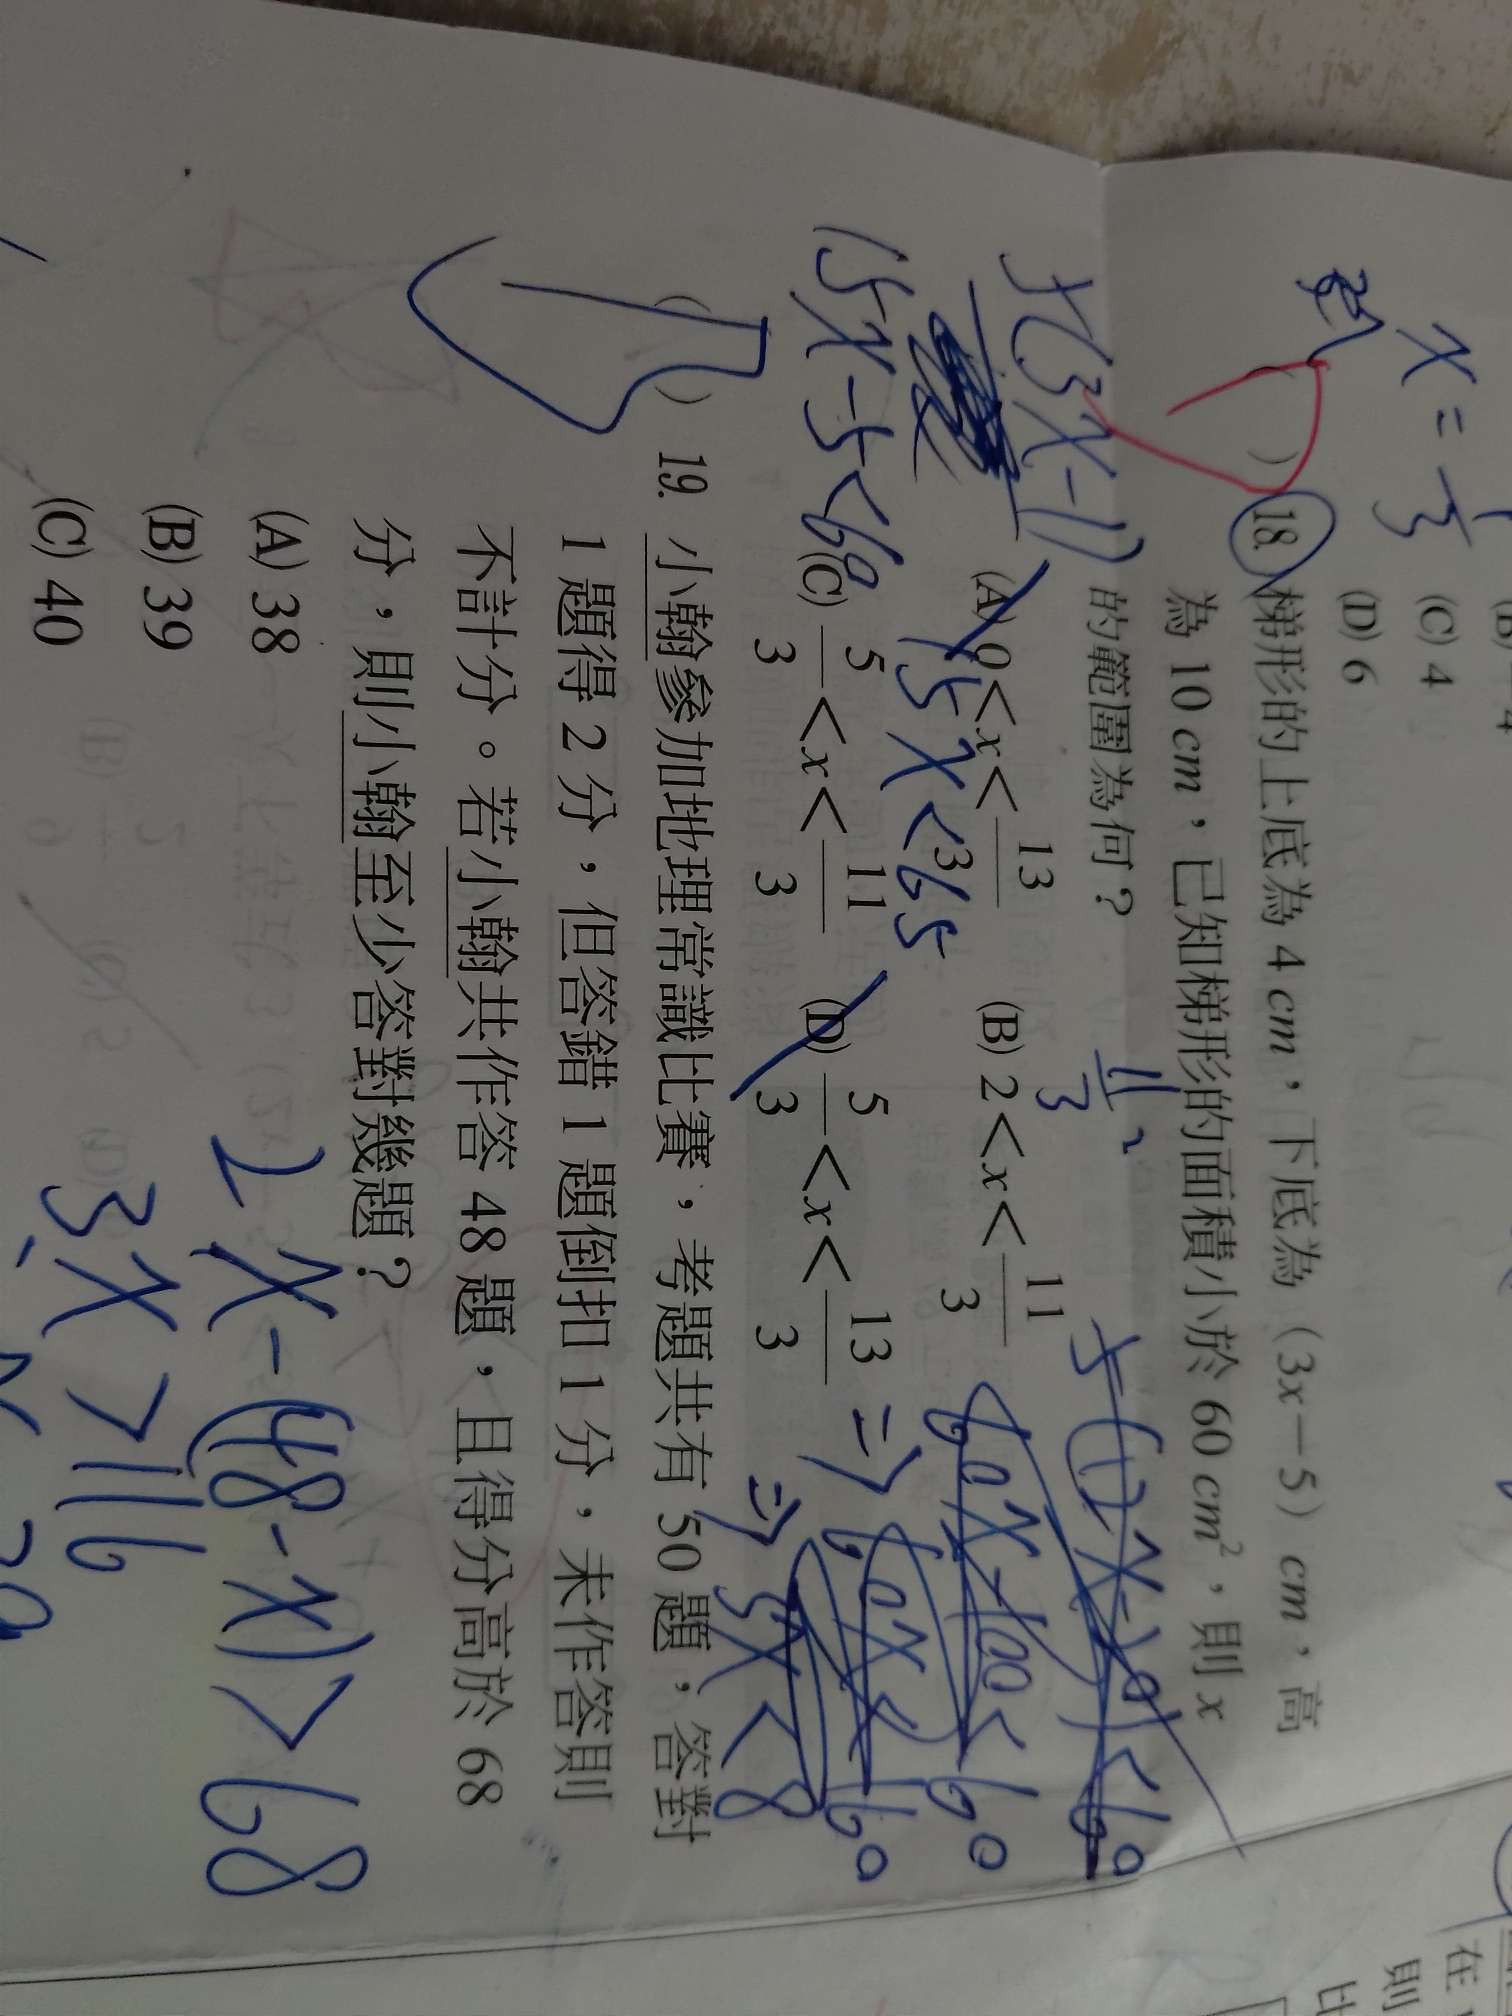 x=
(C) 4
(D) 6
( ) 18. 梯形的上底為 4 cm,下底為(3x－5)cm,高
為 10 cm,已知梯形的面積小於 60 cm²,則 x
的範圍為何?
(A) 0<x<13/3 (B) 2<x<11/3
(C) 5/3<x<11/3 (D) 5/3<x<13/3
5(3x-1)
15x-5<60
15x<65
11/3
5x<8
( ) 19. 小翰參加地理常識比賽,考題共有 50 題,答對
1 題得 2 分,但答錯 1 題倒扣 1 分,未作答則
不計分。若小翰共作答 48 題,且得分高於 68
分,則小翰至少答對幾題?
(A) 38
(B) 39
(C) 40
2x-(48-x)>68
3x>116